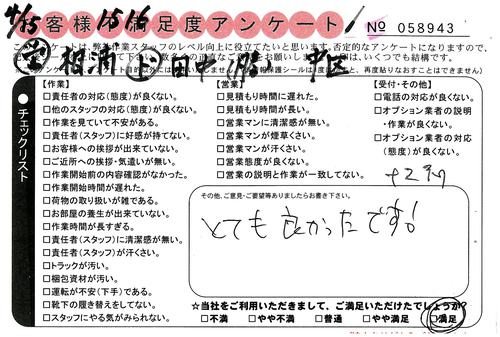 4/25
お客様 満足度アンケート
1516
No 058943
このアンケートは、弊社作業スタッフのレベル向上に役立てたいと思います。否定的なアンケートになりますので、
チェックリスト
【作業】
□責任者の対応(態度)が良くない。
□他のスタッフの対応(態度)が良くない。
□作業を見ていて不安がある。
□責任者(スタッフ)に好感が持てない。
□お客様への挨拶が出来ていない。
□ご近所への挨拶・気遣いが無い。
□作業開始前の内容確認がなかった。
□作業開始時間が遅れた。
□荷物の取り扱いが雑である。
□お部屋の養生が出来ていない。
□作業時間が長すぎる。
□責任者(スタッフ)に清潔感が無い。
□責任者(スタッフ)が汗くさい。
□トラックが汚い。
□梱包資材が汚い。
□運転が不安(下手)である。
□靴下の履き替えをしてない。
□スタッフにやる気がみられない。
【営業】
□見積もり時間に遅れた。
□見積もり時間が長い。
□営業マンに清潔感が無い。
□営業マンが煙草くさい。
□営業マンが汗くさい。
□営業態度が良くない。
□営業の説明と作業が一致してない。
【受付・その他】
□電話の対応が良くない。
□オプション業者の説明
・作業が良くない。
□オプション業者の対応
(態度)が良くない。
その他、ご意見・ご要望等ありましたらお書き下さい。
とても良かったです!
☆当社をご利用いただきまして、ご満足いただけたでしょうか?
□不満 □やや不満 □普通 □やや満足 □満足